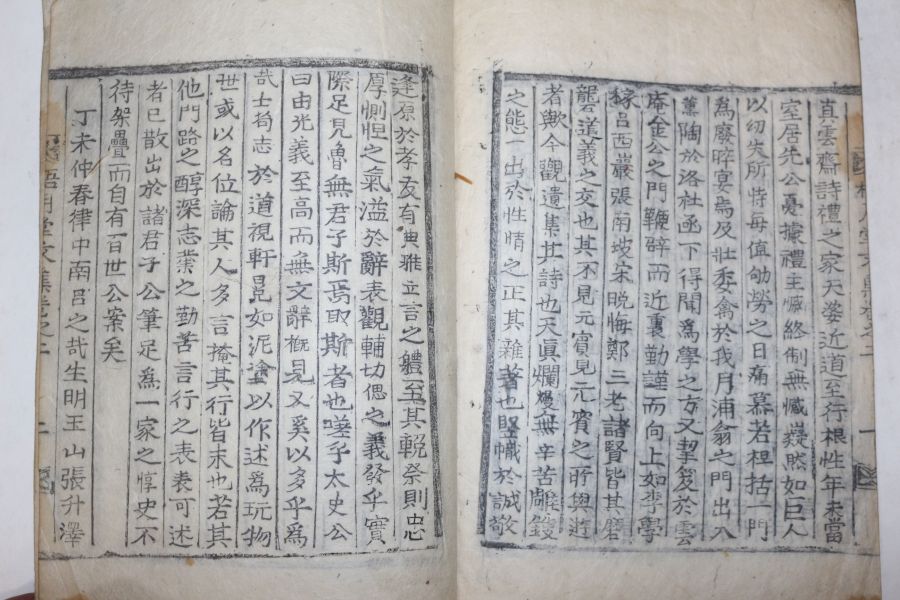 直雲齋詩禮之家天姿近道至行根性年未當
室居先公憂據禮主愼終制無憾嶷然如巨人
以幼失所恃每值劬勞之日痛慕若袒括一門
為廢晬宴焉及壯委禽於我月浦翁之門出入
薰陶於洛杜函下得聞為學之方又挈笈於雲
庵金公之門鞭辟而近裏勤謹而向上如李學
稼呂西巖張南坡宋晩悔鄭三老諸賢皆其磨
礱道義之交也其不見元賓見元賓之所與遊
者歟今觀遺集其詩也天眞爛熳無辛苦雕鎪
之態一出於性情之正其雜著也竪幟於誠敬
逢原於孝友有典雅立言之體至其輓祭則忠
厚惻怛之氣溢於辭表觀輔切偲之義發乎實
際足見魯無君子斯焉取斯者也嗟乎太史公
曰由光義至高而無文辭槪見又奚以多乎爲
哉士苟志於道視軒冕如泥塗以作述爲玩物
世或以名位論其人多言掩其行皆末也若其
他門路之醇深志業之勤苦言行之表表可述
者已散出於諸君子公筆足爲一家之惇史不
待架疊而自有百世公案矣
丁未仲春律中南呂之哉生明王山張升澤
梧月堂文集卷之二
二